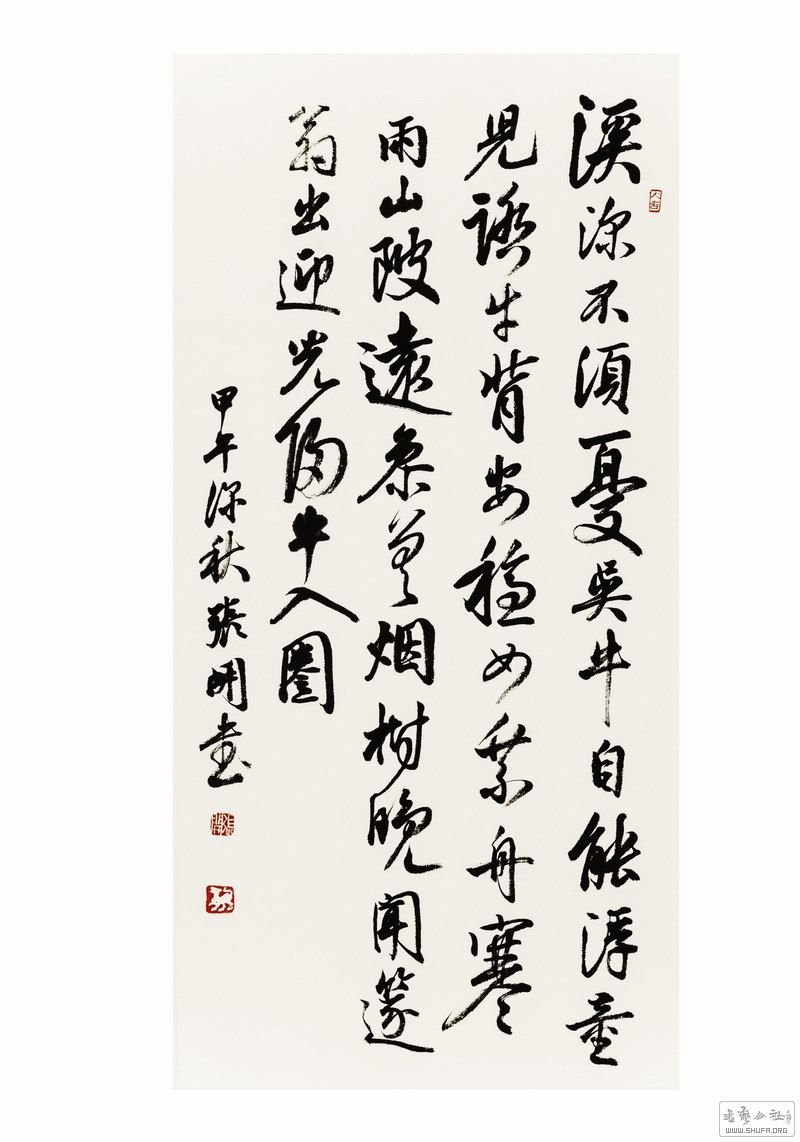 溪深不須憂吳牛自能浮童
兒牛背安穩如乘舟寒
雨山陂遠參差烟樹晚聞篴
翁出迎兒歸牛入圈
甲午深秋張書
書藝公社
WWW.SHUFA.ORG